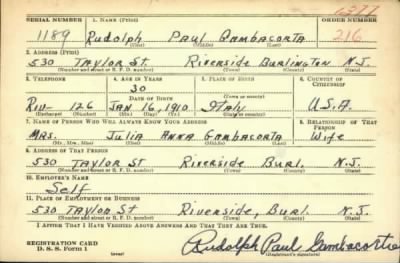 SERIAL NUMBER 1. NAME (Print) ORDER NUMBER
1189 Rudolph Paul Gambacorta 216
(First) (Middle) (Last)
2. ADDRESS (Print)
530 Taylor St. Riverside Burlington N.J.
(Number and street or R. F. D. number) (Town) (County) (State)
3. TELEPHONE 4. AGE IN YEARS 5. PLACE OF BIRTH 6. COUNTRY OF CITIZENSHIP
30
DATE OF BIRTH (Town or county)
RIV- 126 JAN 16, 1910 Italy U.S.A.
(Exchange) (Number) (Mo.) (Day) (Yr.) (State or country)
7. NAME OF PERSON WHO WILL ALWAYS KNOW YOUR ADDRESS 8. RELATIONSHIP OF THAT PERSON
MRS. Julia Anna Gambacorta Wife
(Mr., Mrs., Miss) (First) (Middle) (Last)
9. ADDRESS OF THAT PERSON
530 Taylor St Riverside Burl. N.J.
(Number and street or R. F. D. number) (Town) (County) (State)
10. EMPLOYER'S NAME
Self
11. PLACE OF EMPLOYMENT OR BUSINESS
530 Taylor St Riverside, Burl. N.J.
(Number and street or R. F. D. number) (Town) (County) (State)
I AFFIRM THAT I HAVE VERIFIED ABOVE ANSWERS AND THAT THEY ARE TRUE.
REGISTRATION CARD
D. S. S. Form 1 (over) Rudolph Paul Gambacorta
(Registrant's signature)